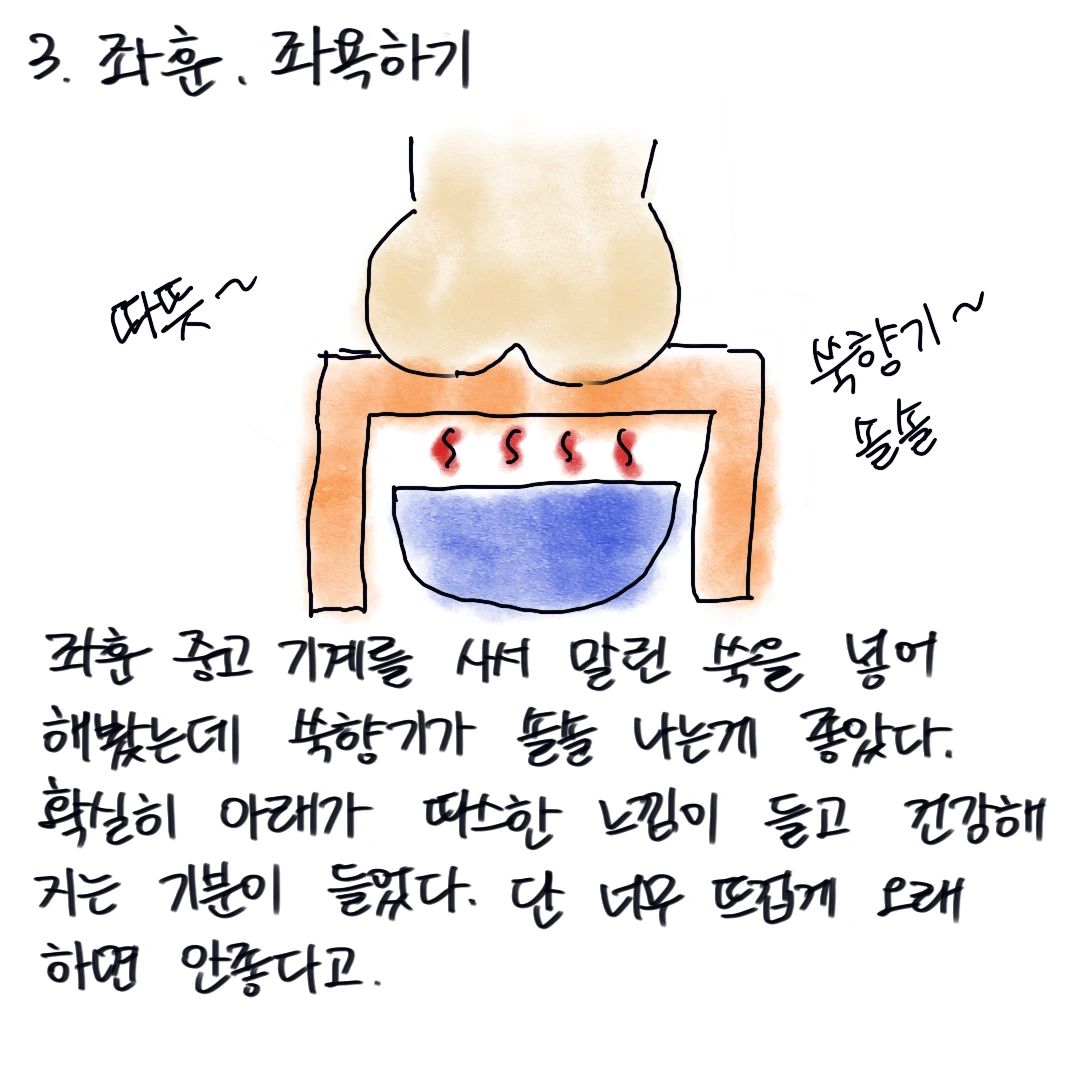 3. 좌훈. 좌욕하기
따뜻~
쑥향기~
솔솔
좌훈 중고 기계를 사서 말린 쑥을 넣어
해봤는데 쑥향기가 솔솔 나는게 좋았다.
확실히 아래가 따스한 느낌이 들고 건강해
지는 기분이 들었다. 단 너무 뜨겁게 오래
하면 안좋다고.